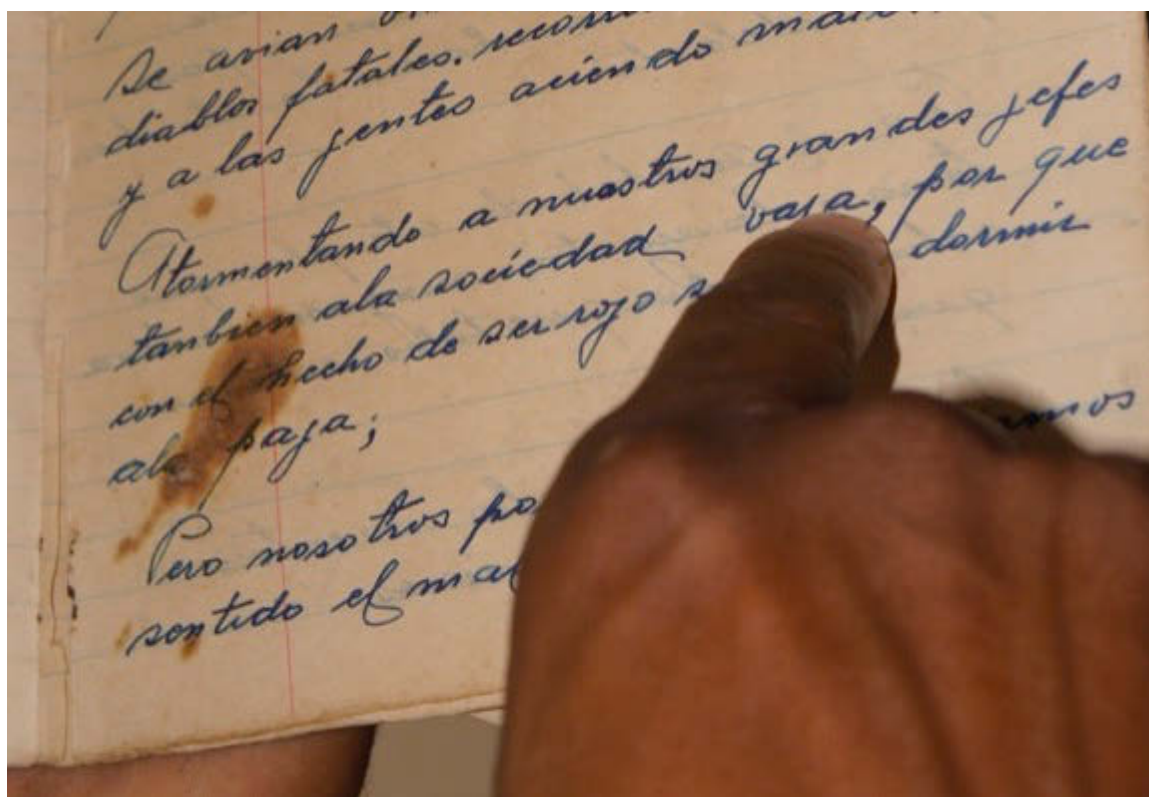 Se avian
diablos fatales. recorri
y a las jentes aciendo
Atormentando a nuestros grandes jefes
tanbien ala sociedad vaja, por que
con el hecho de ser rojo dormir
ala paja;
Pero nosotros
sentido el mal